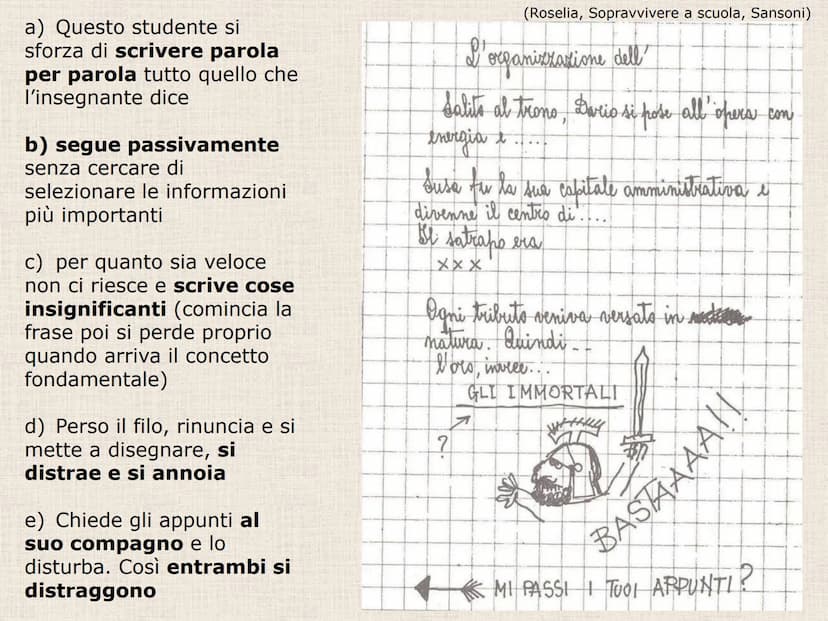 (Roselia, Sopravvivere a scuola, Sansoni)
a) Questo studente si
sforza di scrivere parola
per parola tutto quello che
l’insegnante dice
b) segue passivamente
senza cercare di
selezionare le informazioni
più importanti
c) per quanto sia veloce
non ci riesce e scrive cose
insignificanti (comincia la
frase poi si perde proprio
quando arriva il concetto
fondamentale)
d) Perso il filo, rinuncia e si
mette a disegnare, si
distrae e si annoia
e) Chiede gli appunti al
suo compagno e lo
disturba. Così entrambi si
distraggono
L'organizzazione dell'
Salito al trono, Dario si pose all'opera con
energia e .....
Susa fu la sua capitale amministrativa e
divenne il centro di ....
Il satrapo era
x x x
Ogni tributo veniva versato in
natura. Quindi...
l'oro, invece...
GLI IMMORTALI
?
BASTAAAAA!!!
MI PASSI I TUOI APPUNTI?